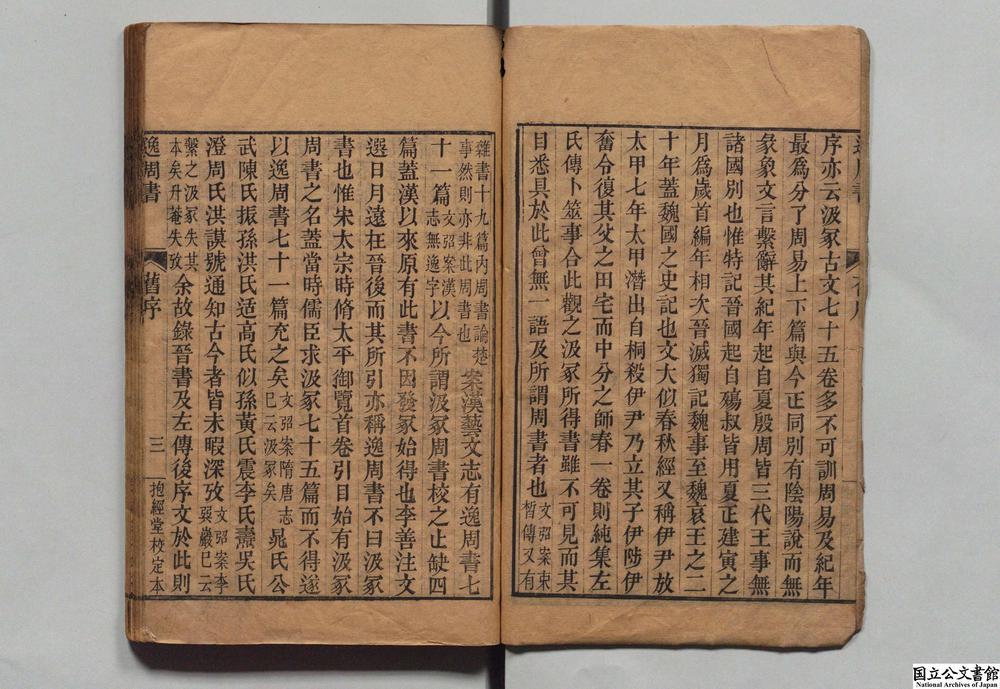 序亦云汲冢古文七十五卷多不可訓周易及紀年
最爲分了周易上下篇與今正同別有陰陽說而無
彖象文言繫辭其紀年起自夏殷周皆三代王事無
諸國別也惟特記晉國起自殤叔皆用夏正建寅之
月爲歲首編年相次晉滅獨記魏事至魏哀王之二
十年蓋魏國之史記也文大似春秋經又稱伊尹放
太甲七年太甲潛出自桐殺伊尹乃立其子伊陟伊
奮令復其父之田宅而中分之師春一卷則純集左
氏傳卜筮事合此觀之汲冢所得書雖不可見而其
目悉具於此曾無一語及所謂周書者也文弨案束晳傳又有
雜書十九篇內周書論楚事然則亦非此周書也案漢藝文志有逸周書七
十一篇文弨案漢志無逸字以今所謂汲冢周書校之止缺四
篇蓋漢以來原有此書不因發冢始得也李善注文
選日月遠在晉後而其所引亦稱逸周書不曰汲冢
書也惟宋太宗時脩太平御覽首卷引目始有汲冢
周書之名蓋當時儒臣求汲冢七十五篇而不得遂
以逸周書七十一篇充之矣文弨案隋唐志已云汲冢矣晁氏公
武陳氏振孫洪氏适高氏似孫黃氏震李氏燾吳氏
澄周氏洪謨號通知古今者皆未暇深攷文弨案李巽巖已云
繫之汲冢失其本矣升菴失攷余故錄晉書及左傳後序文於此則
逸周書 舊序 三 抱經堂校定本
国立公文書館
National Archives of Japan